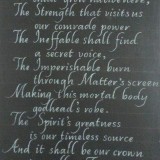 shall grow native here,
The Strength that visits us
our comrade power
The Ineffable shall find
a secret voice,
The Imperishable burn
through Matter's screen
Making this mortal body
godhead's robe.
The Spirit's greatness
is our timeless source
And it shall be our crown